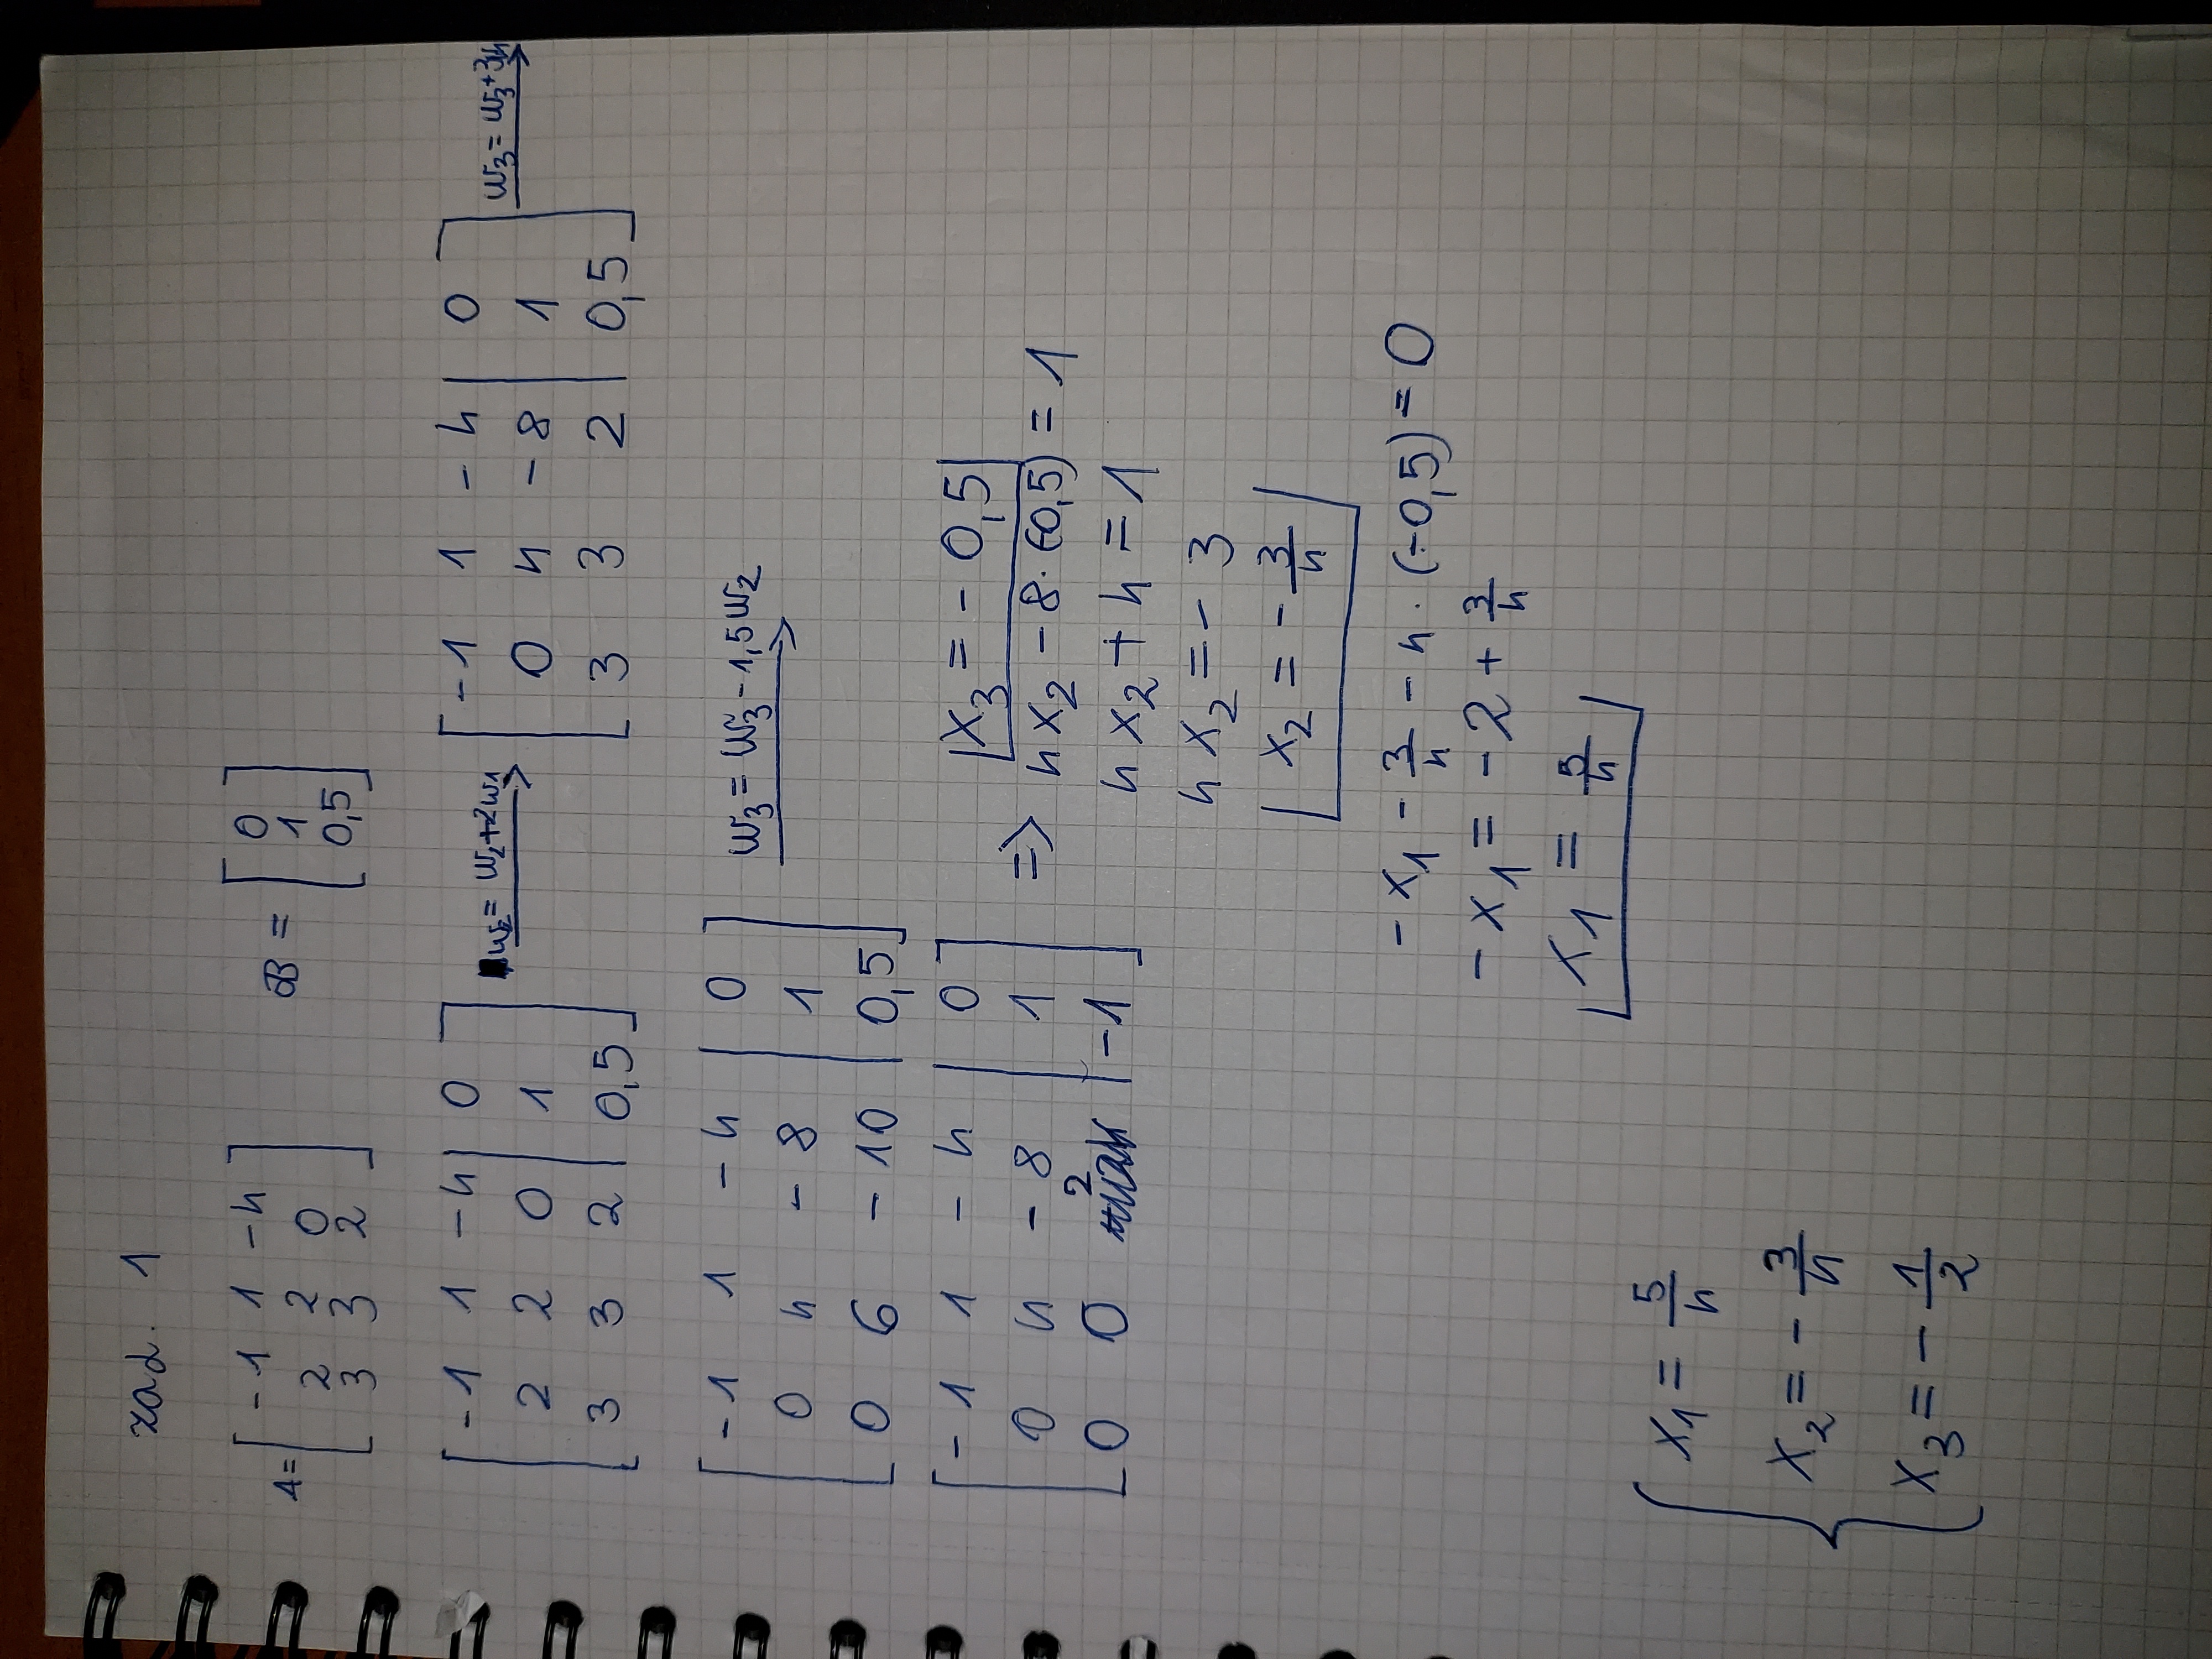 zad. 1
A = [ -1 1 -4 ; 2 2 0 ; 3 3 2 ] B = [ 0 ; 1 ; 0,5 ]
[ -1 1 -4 | 0 ; 2 2 0 | 1 ; 3 3 2 | 0,5 ] w2 = w2+2w1 → [ -1 1 -4 | 0 ; 0 4 -8 | 1 ; 3 3 2 | 0,5 ] w3 = w3+3w1 →
[ -1 1 -4 | 0 ; 0 4 -8 | 1 ; 0 6 -10 | 0,5 ] w3 = w3 - 1,5w2 →
[ -1 1 -4 | 0 ; 0 4 -8 | 1 ; 0 0 2 | -1 ] => x3 = - 0,5
4x2 - 8 · (-0,5) = 1
4x2 + 4 = 1
4x2 = - 3
x2 = - 3/4
- x1 - 3/4 - 4 · (-0,5) = 0
- x1 = - 2 + 3/4
x1 = 5/4
{ x1 = 5/4
x2 = - 3/4
x3 = - 1/2